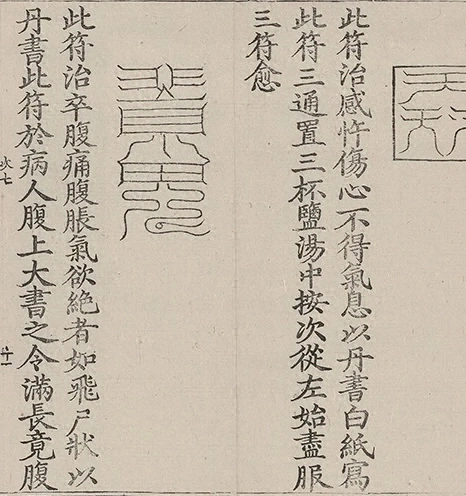 此符治感忤傷心不得氣息以丹書白紙寫
此符三通置三杯鹽湯中按次從左始盡服
三符愈
此符治卒腹痛腹脹氣欲絕者如飛尸狀以
丹書此符於病人腹上大書之令滿長竟腹